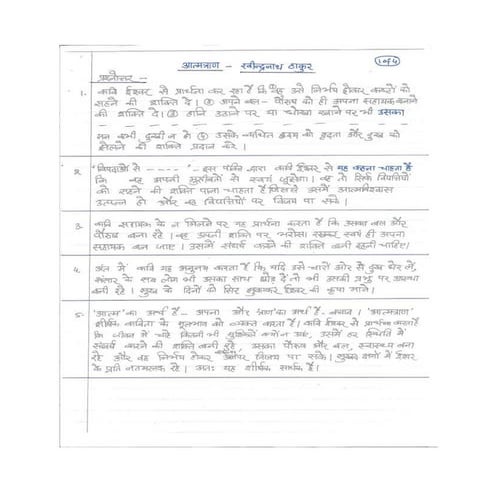 1 of 4
आत्मत्राण - रवीन्द्रनाथ ठाकुर
प्रश्नोत्तर -
1. कवि ईश्वर से प्रार्थना कर रहा है कि वह उसे निर्भय होकर कष्टों को
सहने की शक्ति दे। अपने बल - पौरुष को ही अपना सहायक बनाने
की शक्ति दे। हानि उठाने पर या धोखा खाने पर भी उसका
मन कभी दुखी न हो उसके व्यथित हृदय को दृढ़ता और दुख को
झेलने की शक्ति प्रदान करे।
2. "विपदाओं से - इस पंक्ति द्वारा कवि ईश्वर से यह कहना चाहता है
कि वह अपनी मुसीबतों से स्वयं जूझेगा। वह तो सिर्फ विपत्तियों
को सहने की शक्ति पाना चाहता है जिससे उसमें आत्मविश्वास
उत्पन्न हो और वह विपत्तियों पर विजय पा सके।
3. कवि सहायक के न मिलने पर यह प्रार्थना करता है कि उसका बल और
पौरुष बना रहे। वह अपनी शक्ति पर भरोसा रखकर स्वयं ही अपना
सहायक बन जाए। उसमें संघर्ष करने की शक्ति बनी रहनी चाहिए।
4. अंत में कवि यह अनुनय करता है कि यदि उसे चारों ओर से दुख घेर लें,
संसार के सब लोग भी उसका साथ छोड़ दें तो भी उसकी प्रभु पर आस्था
बनी रहे। सुख के दिनों को सिर झुकाकर ईश्वर की कृपा माने।
5. 'आत्म' का अर्थ है - अपना और त्राण का अर्थ है - बचाव। 'आत्मत्राण'
शीर्षक कविता के मूलभाव को व्यक्त करता है। कवि ईश्वर से प्रार्थना करता है
कि जीवन में चाहे कितनी भी मुश्किलें क्यों न आएं, उसके हर स्थिति में
संघर्ष करने की शक्ति बनी रहे, उसका पौरुष और बल, बना
रहे और वह निर्भय होकर उनपर विजय पा सके। सुखद क्षणों में ईश्वर
के प्रति नतमस्तक रहे। अतः यह शीर्षक सार्थक है।